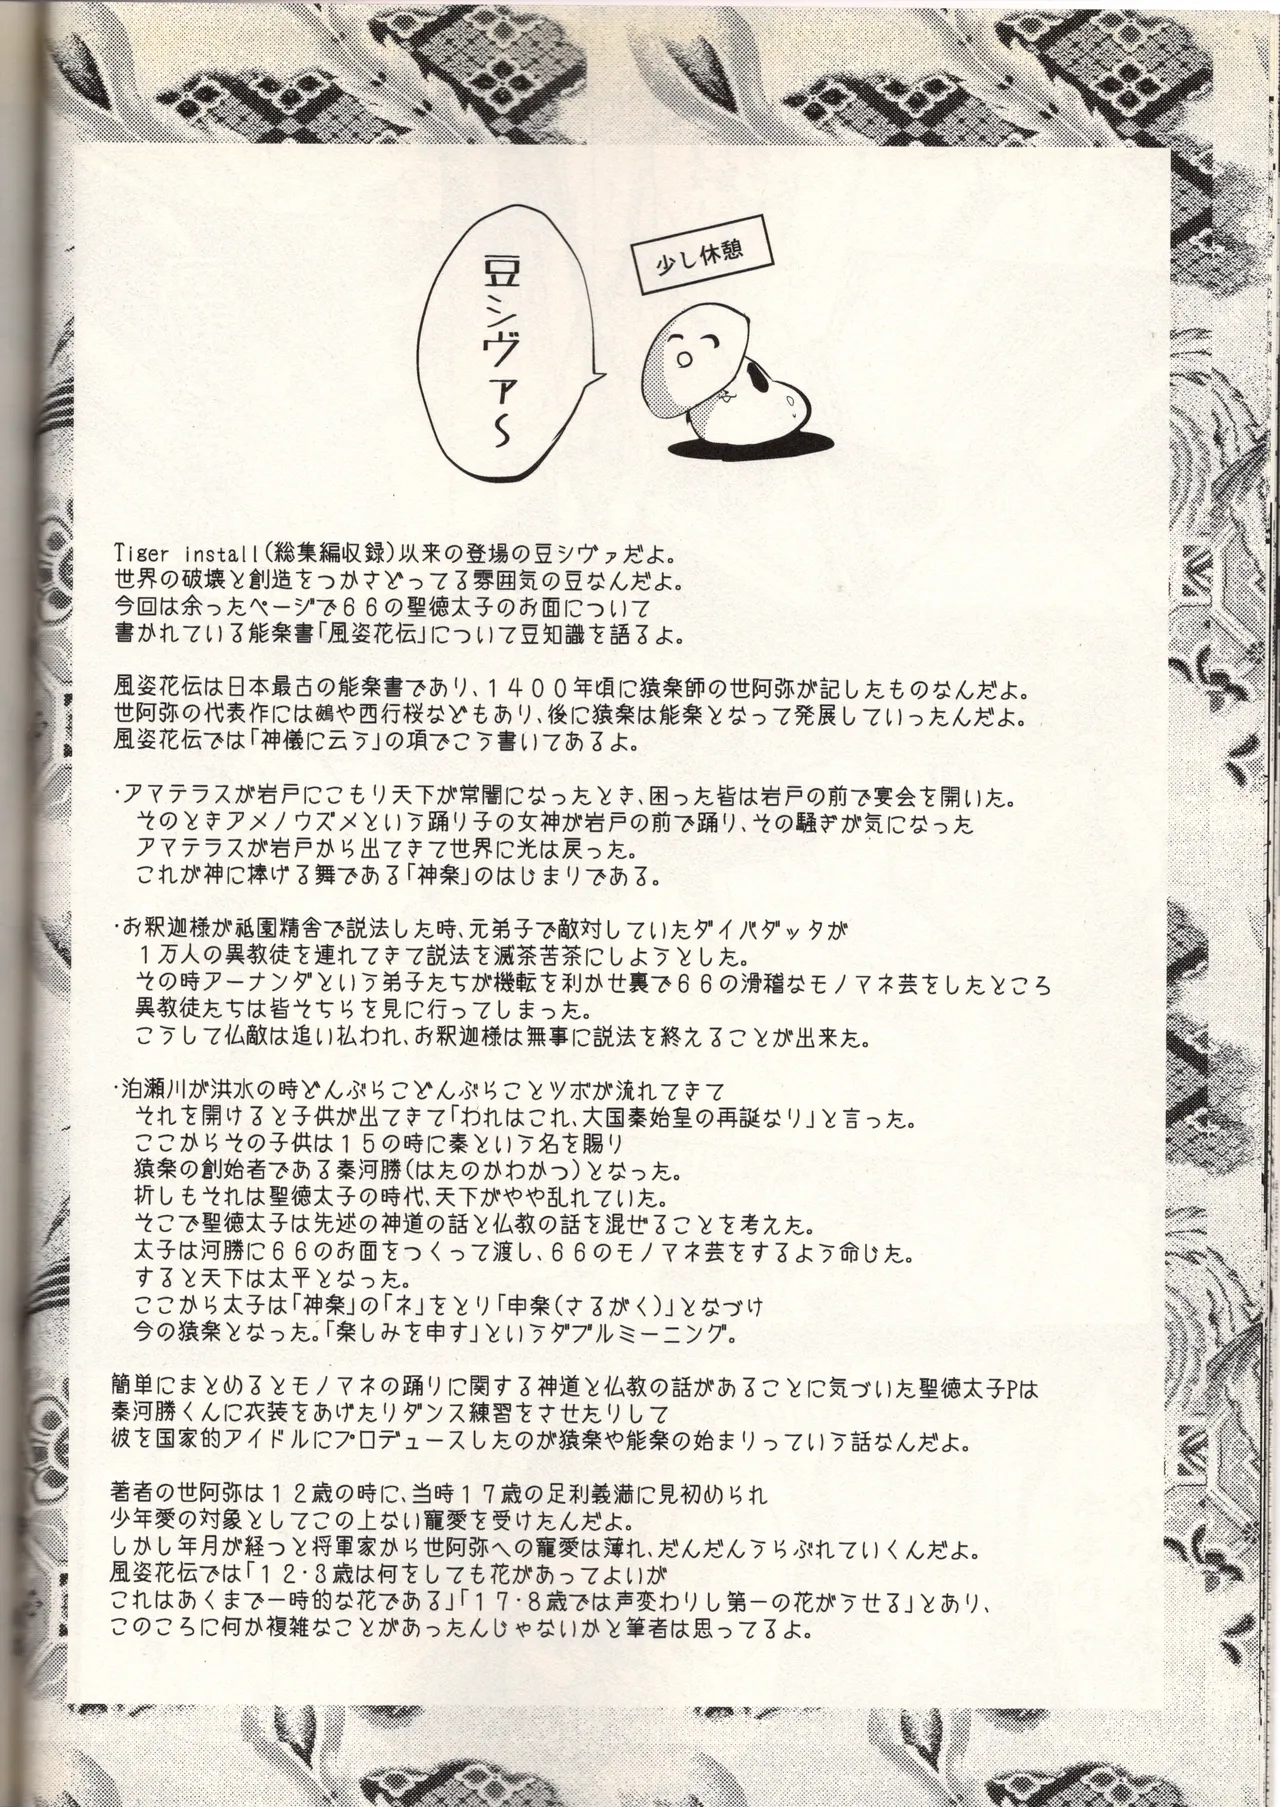 少し休憩
豆シヴァ～
Tiger install(総集編収録)以来の登場の豆シヴァだよ。
世界の破壊と創造をつかさどってる雰囲気の豆なんだよ。
今回は余ったページで６６の聖徳太子のお面について
書かれている能楽書「風姿花伝」について豆知識を語るよ。
風姿花伝は日本最古の能楽書であり、１４００年頃に猿楽師の世阿弥が記したものなんだよ。
世阿弥の代表作には鵺や西行桜などもあり、後に猿楽は能楽となって発展していったんだよ。
風姿花伝では「神儀に云う」の項でこう書いてあるよ。
・アマテラスが岩戸にこもり天下が常闇になったとき、困った皆は岩戸の前で宴会を開いた。
そのときアメノウズメという踊り子の女神が岩戸の前で踊り、その騒ぎが気になった
アマテラスが岩戸から出てきて世界に光は戻った。
これが神に捧げる舞である「神楽」のはじまりである。
・お釈迦様が祇園精舎で説法した時、元弟子で敵対していたダイバダッタが
１万人の異教徒を連れてきて説法を滅茶苦茶にしようとした。
その時アーナンダという弟子たちが機転を利かせ裏で６６の滑稽なモノマネ芸をしたところ
異教徒たちは皆そちらを見に行ってしまった。
こうして仏敵は追い払われ、お釈迦様は無事に説法を終えることが出来た。
・泊瀬川が洪水の時どんぶらこどんぶらことツボが流れてきて
それを開けると子供が出てきて「われはこれ、大国秦始皇の再誕なり」と言った。
ここからその子供は１５の時に秦という名を賜り
猿楽の創始者である秦河勝(はたのかわかつ)となった。
折しもそれは聖徳太子の時代、天下がやや乱れていた。
そこで聖徳太子は先述の神道の話と仏教の話を混ぜることを考えた。
太子は河勝に６６のお面をつくって渡し、６６のモノマネ芸をするよう命じた。
すると天下は太平となった。
ここから太子は「神楽」の「ネ」をとり「申楽(さるがく)」となづけ
今の猿楽となった。「楽しみを申す」というダブルミーニング。
簡単にまとめるとモノマネの踊りに関する神道と仏教の話があることに気づいた聖徳太子Pは
秦河勝くんに衣装をあげたりダンス練習をさせたりして
彼を国家的アイドルにプロデュースしたのが猿楽や能楽の始まりっていう話なんだよ。
著者の世阿弥は１２歳の時に、当時１７歳の足利義満に見初められ
少年愛の対象としてこの上ない寵愛を受けたんだよ。
しかし年月が経つと将軍家から世阿弥への寵愛は薄れ、だんだんうらぶれていくんだよ。
風姿花伝では「１２・３歳は何をしても花があってよいが
これはあくまで一時的な花である」「１７・８歳では声変わりし第一の花がうせる」とあり、
このころに何か複雑なことがあったんじゃないかと筆者は思ってるよ。